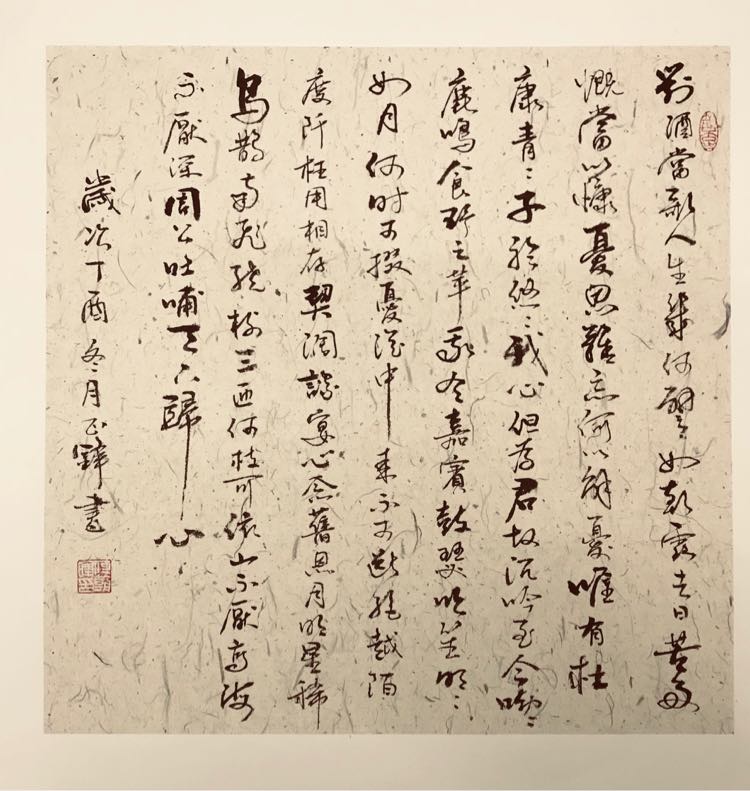 對酒當歌人生幾何譬如朝露去日苦多
慨當以慷憂思難忘何以解憂唯有杜
康青〻子衿悠〻我心但為君故沉吟至今呦〻
鹿鳴食野之苹我有嘉賓鼓瑟吹笙明〻
如月何時可掇憂從中來不可斷絕越陌
度阡枉用相存契闊談宴心念舊恩月明星稀
烏鵲南飛繞樹三匝何枝可依山不厭高海
不厭深周公吐哺天下歸心
歲次丁酉冬月書